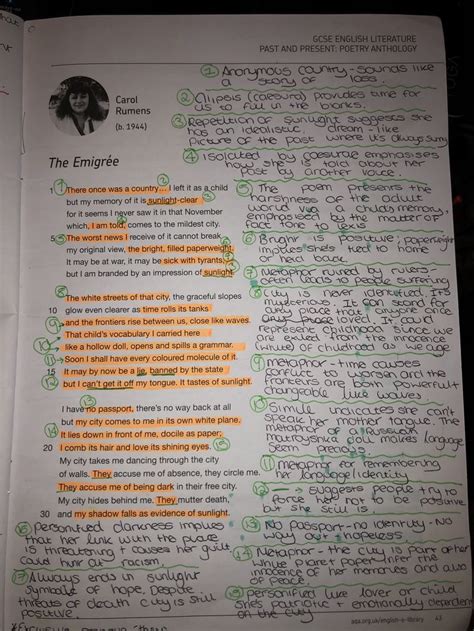 GCSE ENGLISH LITERATURE
PAST AND PRESENT: POETRY ANTHOLOGY
Carol
Rumens
(b. 1944)
The Emigrée
1 There once was a country... I left it as a child
but my memory of it is sunlight-clear
for it seems I never saw it in that November
which, I am told, comes to the mildest city.
5 The worst news I receive of it cannot break
my original view, the bright, filled paperweight.
It may be at war, it may be sick with tyrants,
but I am branded by an impression of sunlight.
The white streets of that city, the graceful slopes
10 glow even clearer as time rolls its tanks
and the frontiers rise between us, close like waves.
That child's vocabulary I carried here
like a hollow doll, opens and spills a grammar.
Soon I shall have every coloured molecule of it.
15 It may by now be a lie, banned by the state
but I can't get it off my tongue. It tastes of sunlight.
I have no passport, there's no way back at all
but my city comes to me in its own white plane.
It lies down in front of me, docile as paper;
20 I comb its hair and love its shining eyes.
My city takes me dancing through the city
of walls. They accuse me of absence, they circle me.
They accuse me of being dark in their free city.
My city hides behind me. They mutter death,
30 and my shadow falls as evidence of sunlight.
① Anonymous country - sounds like
a story of loss
② Ellipsis (caesura) provides time for
us to fill in the blanks.
③ Repetition of sunlight suggests she
has an idealistic, dream-like
picture of the past where its always sunny
④ isolcated by caesurae emphasises
how she is told about her
past by another voice.
⑤ The poem presents the
harshness of the adult
world via a child's memory,
emphasised by the matter of
fact tone to lexis
⑥ Bright is positive, paperweight
implies she's tied to home
or held back
⑦ Metaphor ruined by rulers -
often leads to people suffering
⑧ City is never identified. It's
mysterious. It can stand for
any place that anyone once
loved. It could
represent childhood since we
are exiled from the innocence
(white) of childhood as we age
⑨ Metaphor - time causes
conflict to worsen and the
frontiers are both powerful +
changeable like waves
⑩ Simile indicates she can't
speak her mother tongue. The
metaphor of a Russian
matroyshka doll makes language
seem precious
⑪ metaphor for remembering
her language/identity
⑫ suggests people try to
force her not to be positive
but she still is.
⑬ No passport - no identity - no
way out + hopeless
⑭ Metaphor - the city is part of her
white plane + paper infer the
innocence of her memories and also
of peace.
⑮ personified like lover or child
she's patriotic + emotionally dependent
on the city
⑯ personified darkness implies
that her link with the place
is threatening + causes her guilt
could hint at racism.
⑰ Always ends in sunlight
symbolic of hope. Despite
threats of death city is still
positive.
aqa.org.uk/english-e-library
43